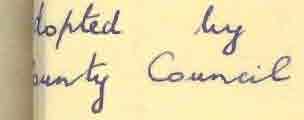 dopted by
ounty Council